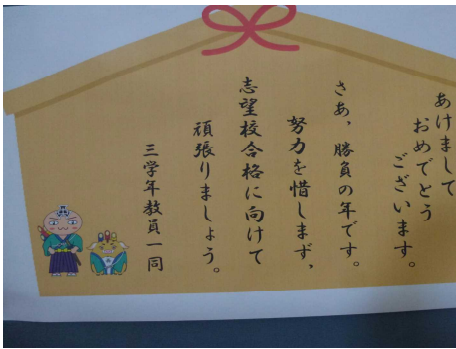 あけまして
おめでとう
ございます。
さあ、勝負の年です。
努力を惜しまず、
志望校合格に向けて
頑張りましょう。
三学年教員一同